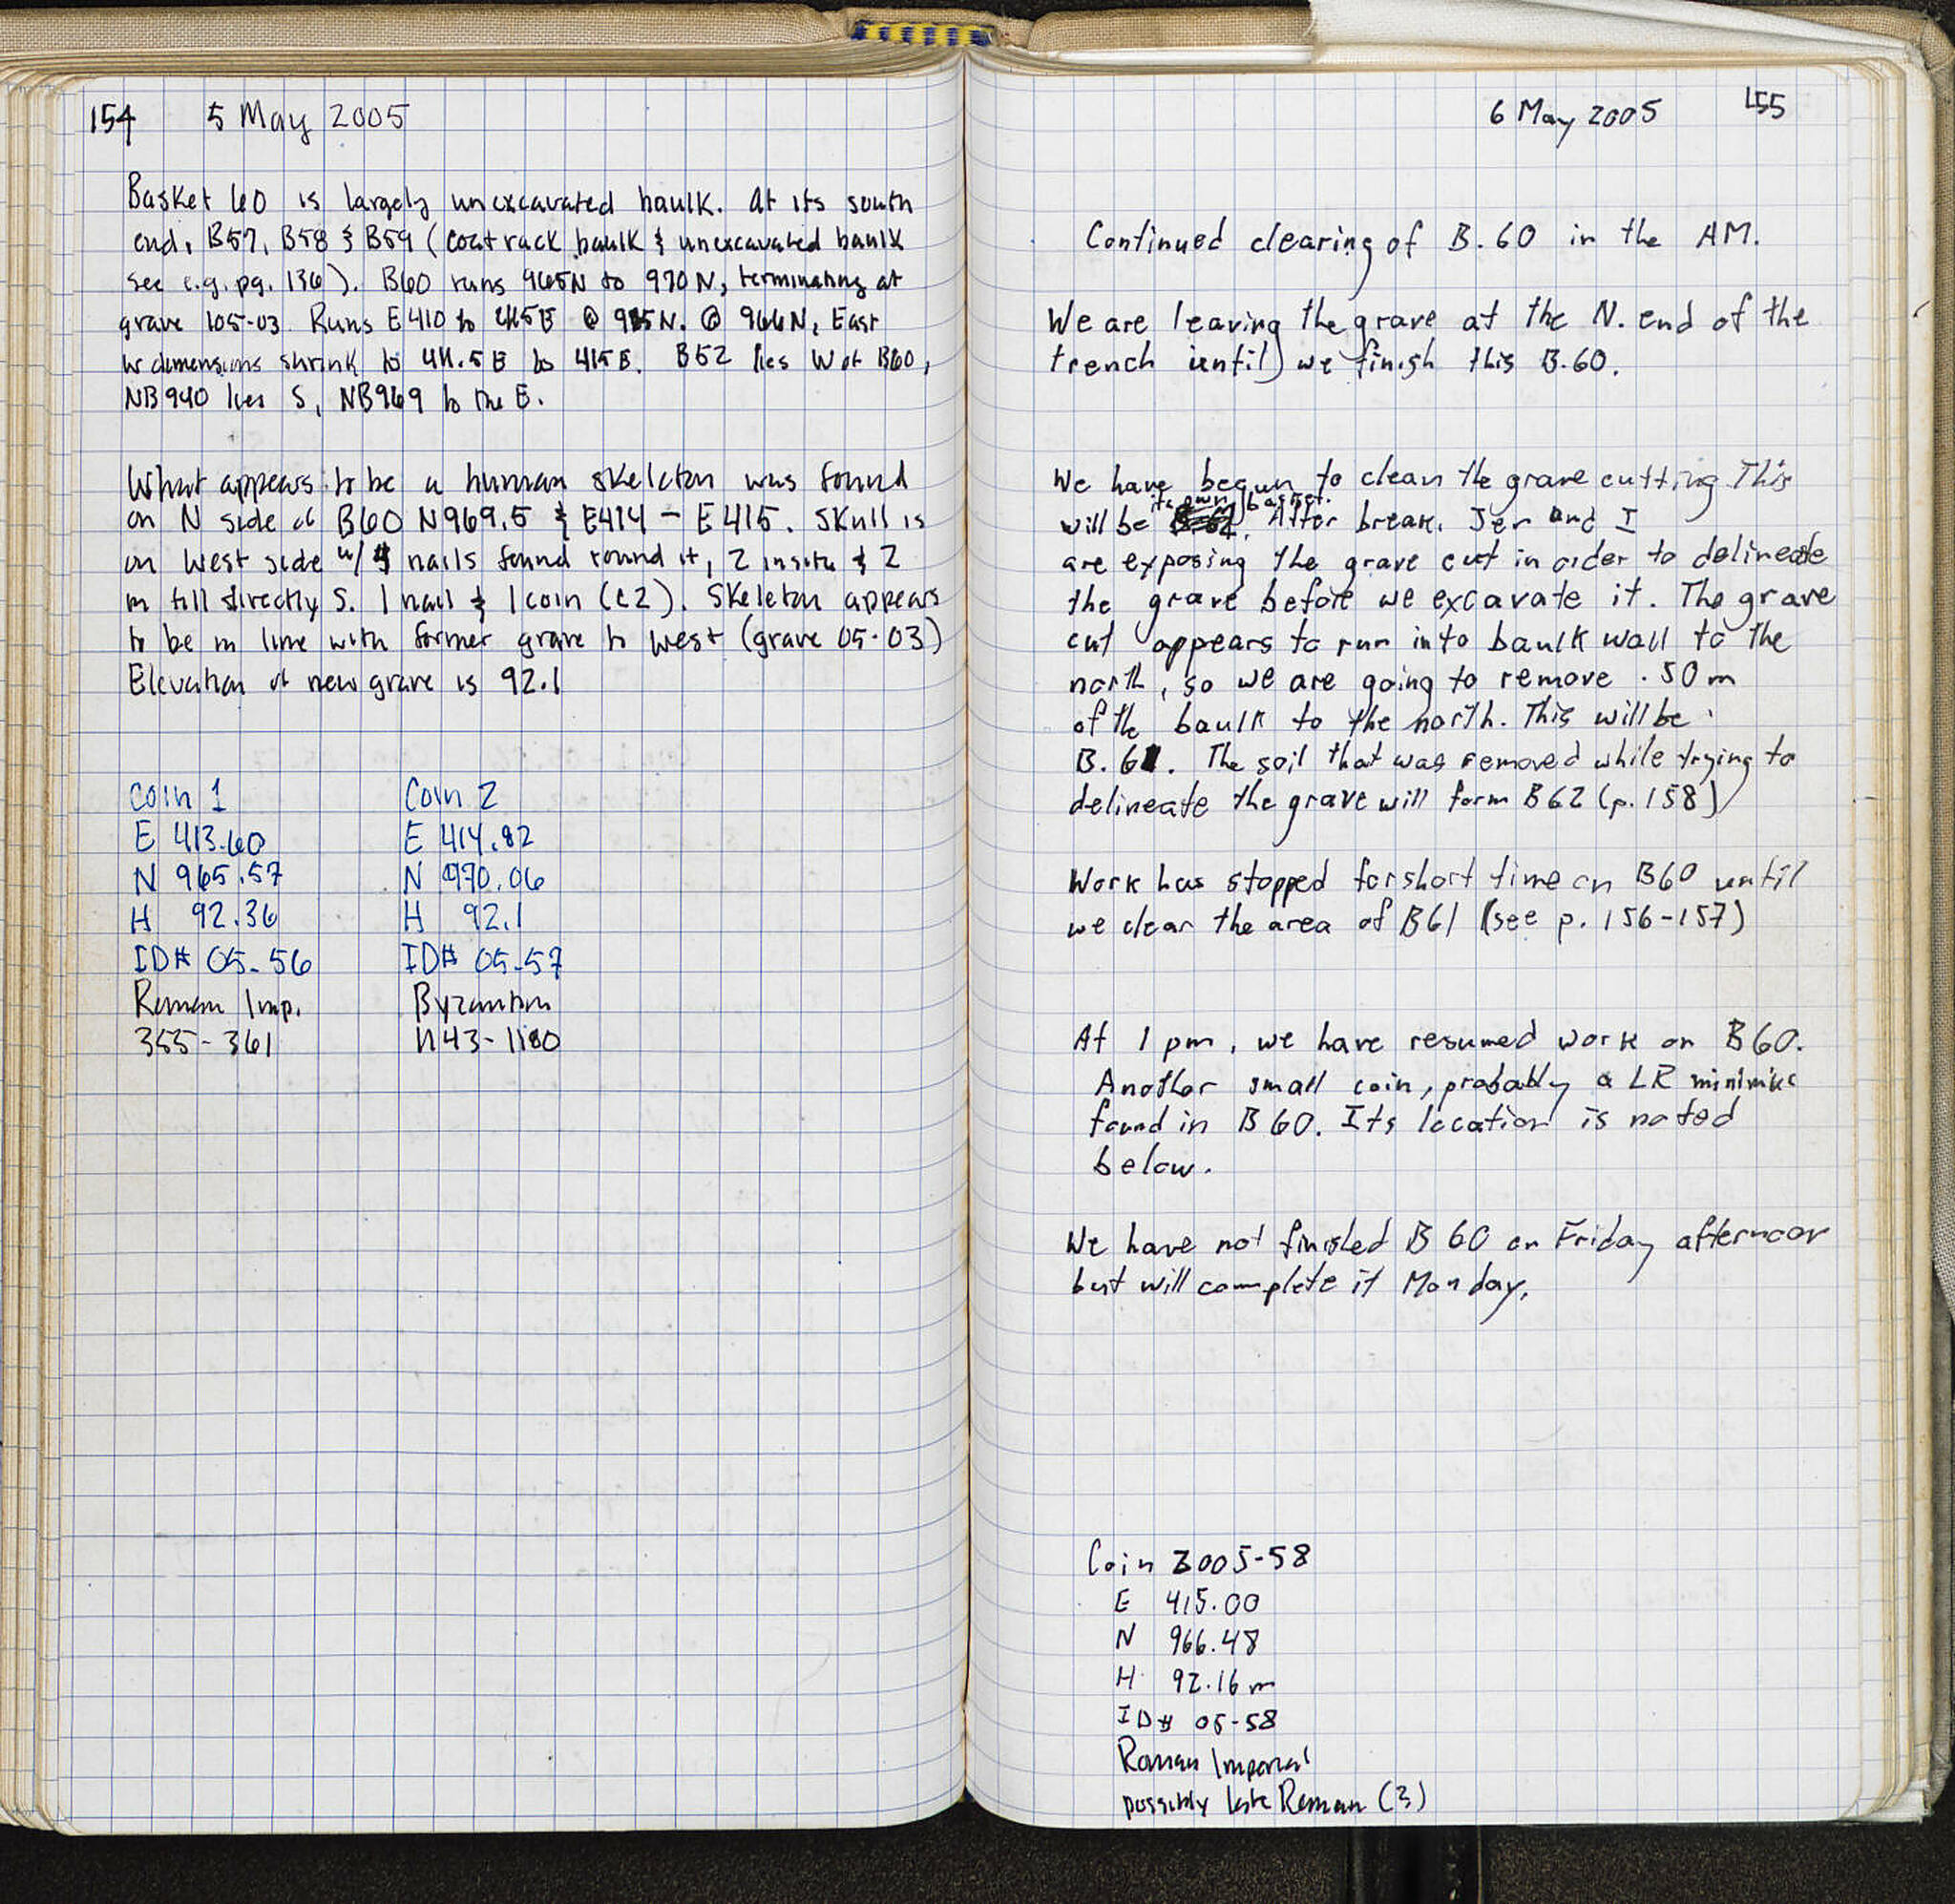 154 5 May 2005
Basket 60 is largely unexcavated baulk. At its south
end, B57, B58 & B59 (coat rack baulk & unexcavated baulk
see e.g. pg. 136). B60 runs 965N to 970N, terminating at
grave 105-03. Runs E410 to 415E @ 965N. @ 966N, East
dimensions shrink to 411.5E to 415E. B52 lies W of B60,
NB940 lies S, NB969 to the E.
What appears to be a human skeleton was found
on N side of B60 N969.5 & E414 - E415. Skull is
on West side w/ 4 nails found round it, 2 insitu & 2
in fill directly S. 1 nail & 1 coin (c2). Skeleton appears
to be in line with former grave to west (grave 05-03)
Elevation of new grave is 92.1
Coin 1 Coin 2
E 413.60 E 414.82
N 965.57 N 970.06
H 92.36 H 92.1
ID# 05-56 ID# 05-57
Roman Imp. Byzantine
355-361 1143-1180
6 May 2005 155
Continued clearing of B.60 in the AM.
We are leaving the grave at the N. end of the
trench until we finish this B.60.
We have begun to clean the grave cutting This
will be its own basket. After break, Jer and I
are exposing the grave cut in order to delineate
the grave before we excavate it. The grave
cut appears to run into baulk wall to the
north, so we are going to remove .50m
of the baulk to the north. This will be
B.61. The soil that was removed while trying to
delineate the grave will form B62 (p.158)
Work has stopped for short time on B60 until
we clear the area of B61 (see p. 156-157)
At 1 pm, we have resumed work on B60.
Another small coin, probably a LR minimus
found in B60. Its location is noted
below.
We have not finished B60 on Friday afternoon
but will complete it Monday.
Coin 2005-58
E 415.00
N 966.48
H 92.16m
ID# 05-58
Roman Imperial
possibly late Roman (?)